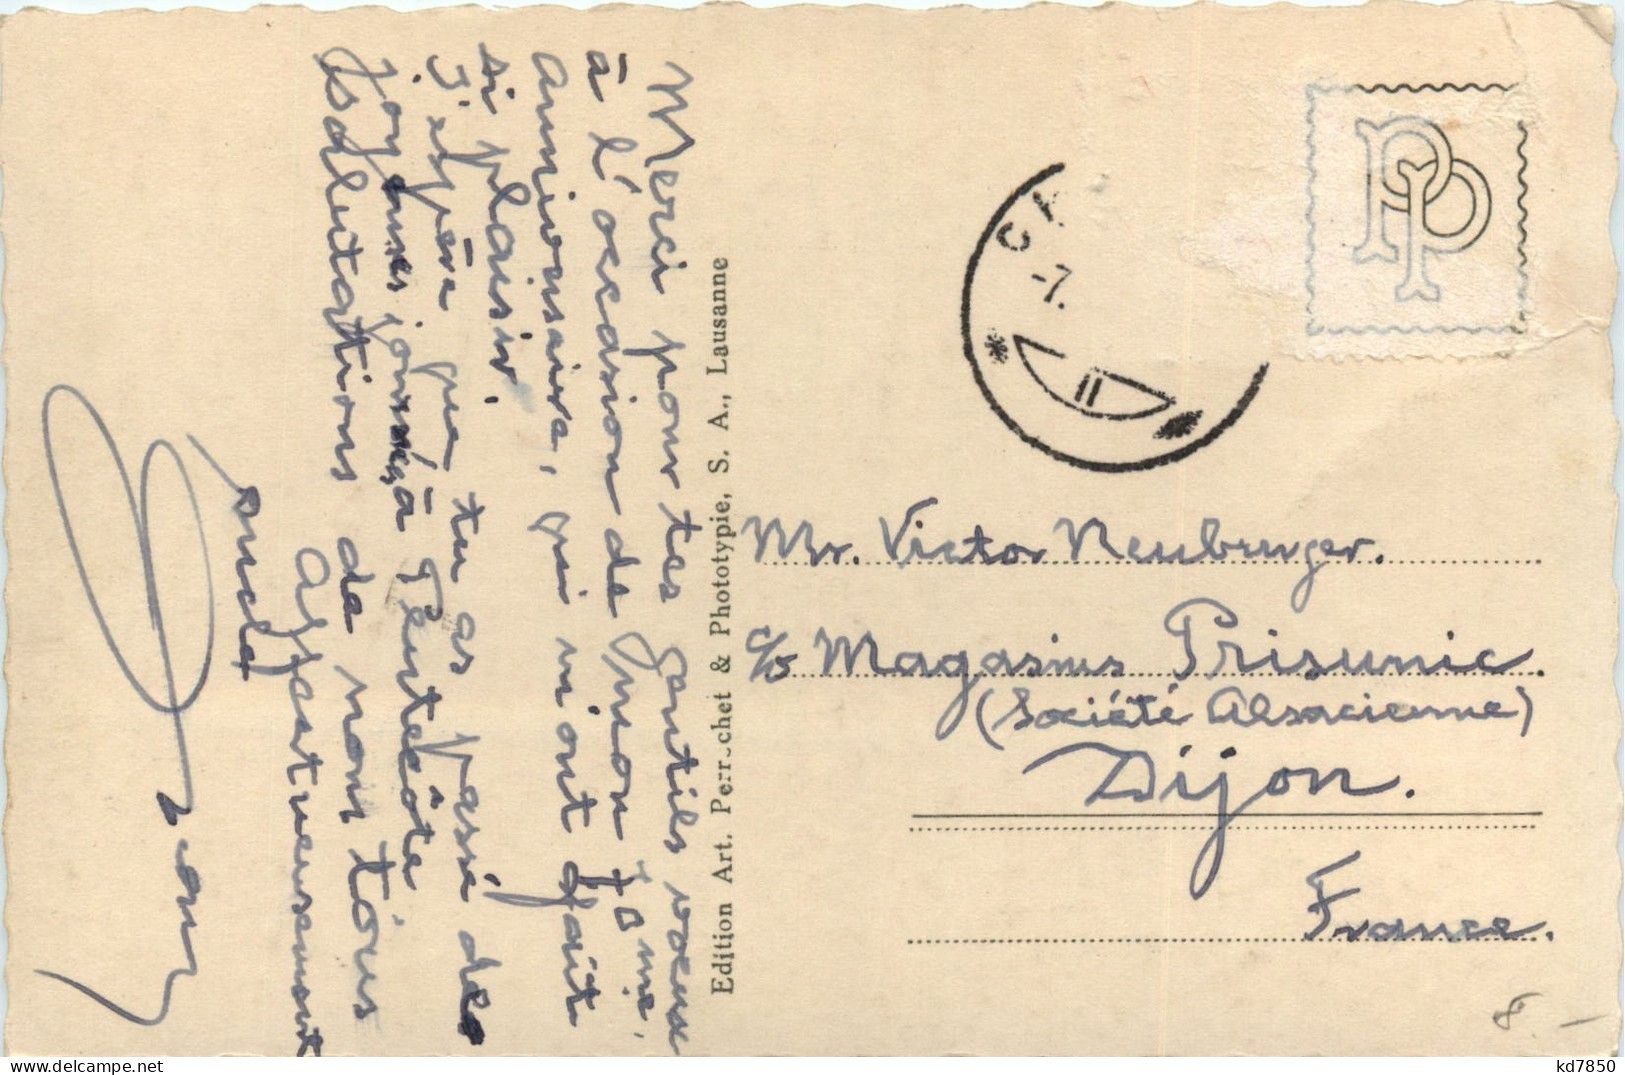 Merci pour tes gentils voeux
à l'occasion de mon
anniversaire, qui m'ont fait
si plaisir.
J'espère que tu as passé de
joyeuses journées à Pentecôte
salutations de nous tous
Affectueusement
oncle
Edition Art. Perrochet & Phototypie, S. A., Lausanne
PP
-7.
II
Mr. Victor Neubruger.
c/o Magasins Prisunic.
(Société Alsacienne)
Dijon.
France.
8.-
kd7850